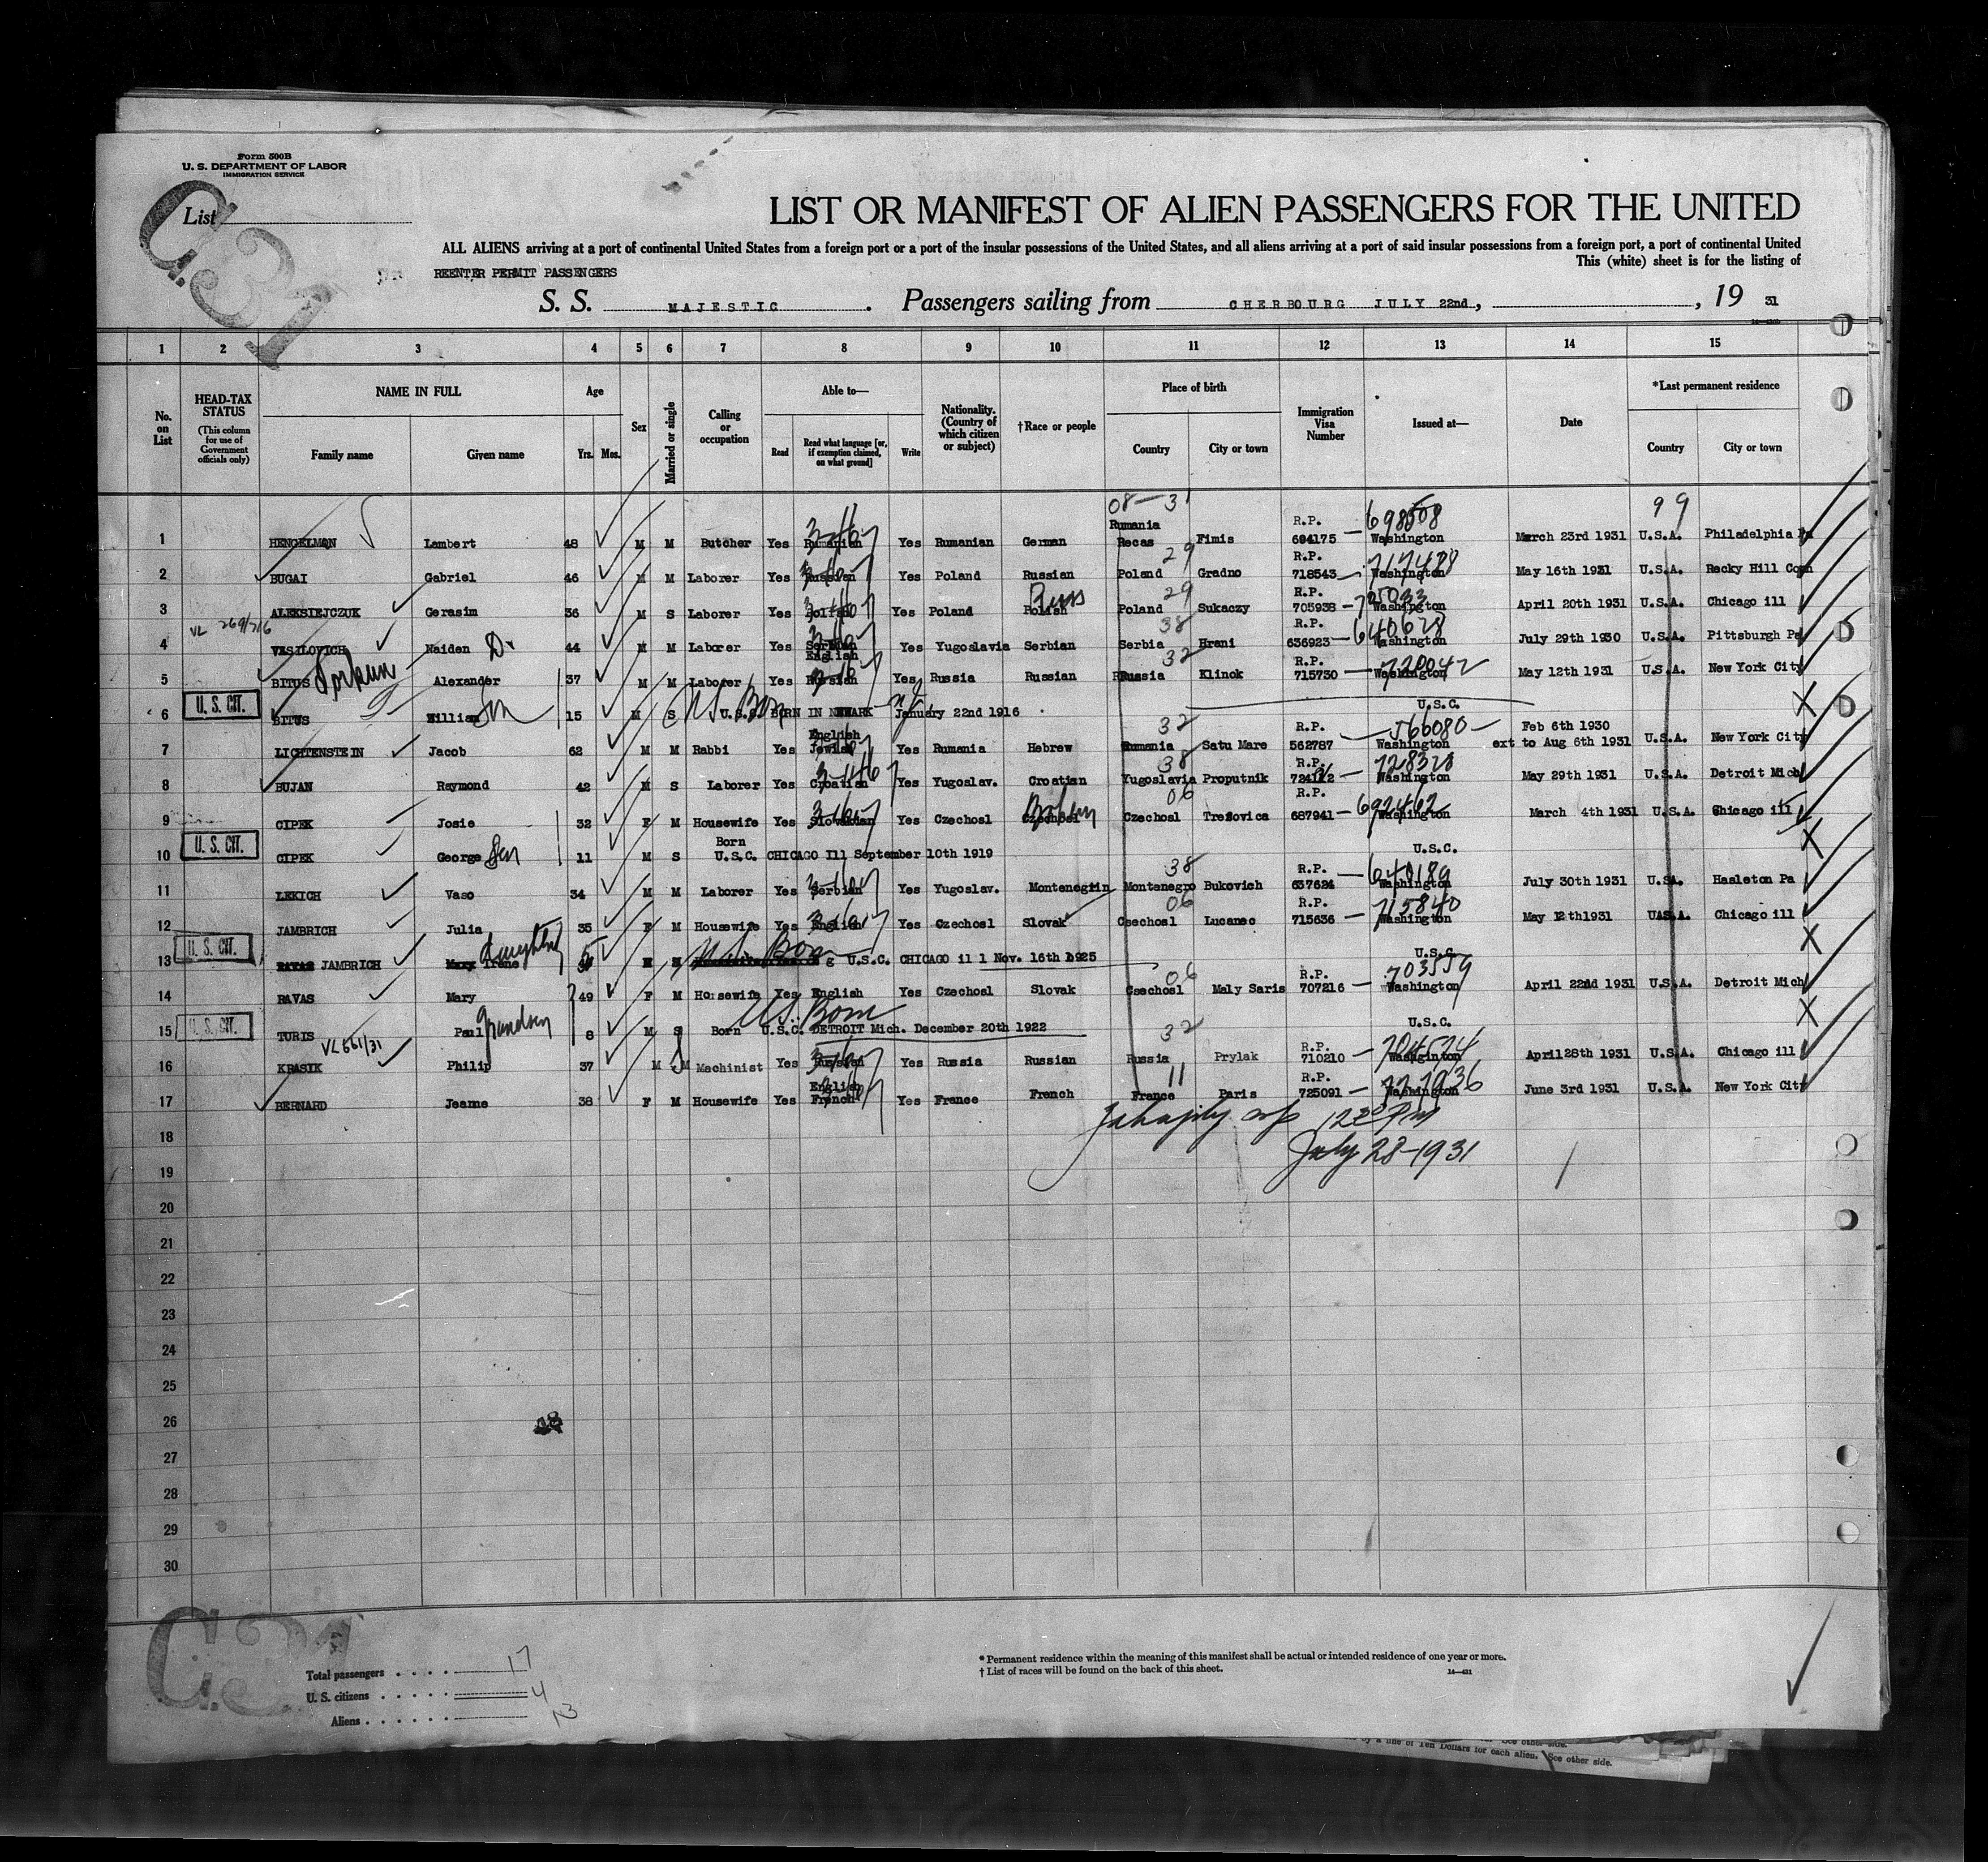 Form 500B
U. S. DEPARTMENT OF LABOR
IMMIGRATION SERVICE
C.31
List
LIST OR MANIFEST OF ALIEN PASSENGERS FOR THE UNITED
ALL ALIENS arriving at a port of continental United States from a foreign port or a port of the insular possessions of the United States, and all aliens arriving at a port of said insular possessions from a foreign port, a port of continental United
This (white) sheet is for the listing of
REENTER PERMIT PASSENGERS
S. S. MAJESTIC. Passengers sailing from CHERBOURG JULY 22nd, , 19 31
1 2 3 4 5 6 7 8 9 10 11 12 13 14 15
No. on List
HEAD-TAX STATUS (This column for use of Government officials only)
NAME IN FULL Family name Given name
Age Yrs. Mos.
Sex
Married or single
Calling or occupation
Able to— Read Read what language [or, if exemption claimed, on what ground] Write
Nationality. (Country of which citizen or subject)
†Race or people
Place of birth Country City or town
Immigration Visa Number
Issued at—
Date
*Last permanent residence Country City or town
08-31 99
1 HENGELMON Lambert 48 M M Butcher Yes Rumanian Yes Rumanian German Rumania Recas Fimis R.P. 694175 — 698508 Washington March 23rd 1931 U.S.A. Philadelphia Pa
2 BUGAI Gabriel 46 M M Laborer Yes Russian Yes Poland Russian Poland 29 Gradno R.P. 718543 — 717488 Washington May 16th 1931 U.S.A. Rocky Hill Conn
3 ALEKSIEJCZUK Gerasim 36 M S Laborer Yes Yes Poland Polish Russ Poland 29 Sukaczy R.P. 705938 — Washington April 20th 1931 U.S.A. Chicago ill
VL 269/716
4 VASILOVICH Naiden D. 44 M M Laborer Yes Serbian Yes Yugoslavia Serbian Serbia 38 Hrani R.P. 636923 — 640628 Washington July 29th 1930 U.S.A. Pittsburgh Pa
5 BITUS Alexander 37 M M Laborer Yes English Russian Yes Russia Russian Russia 32 Klinok R.P. 715730 — 720042 Washington May 12th 1931 U.S.A. New York City
U. S. CIT.
6 BITUS William Son 15 M S U.S. Born U.S.C. BORN IN NEWARK NJ January 22nd 1916 U.S.C.
7 LICHTENSTEIN Jacob 62 M M Rabbi Yes English Jewish Yes Rumania Hebrew Rumania 32 Satu Mare R.P. 562787 — 566080 Washington Feb 6th 1930 ext to Aug 6th 1931 U.S.A. New York City
8 BUJAN Raymond 42 M S Laborer Yes Croatian Yes Yugoslav. Croatian Yugoslavia 38 Proputnik R.P. — 728328 Washington May 29th 1931 U.S.A. Detroit Mich
9 CIPEK Josie 32 F M Housewife Yes Slovakian Yes Czechosl Czechosl Czechosl 06 Tresovica R.P. 687941 — 692462 Washington March 4th 1931 U.S.A. Chicago ill
U. S. CIT.
10 CIPEK George Son 11 M S Born U.S.C. CHICAGO Ill September 10th 1919 U.S.C.
11 LEKICH Vaso 34 M M Laborer Yes Serbian Yes Yugoslav. Montenegrin Montenegro 38 Bukovich R.P. 637624 — 640189 Washington July 30th 1931 U.S.A. Hasleton Pa
12 JAMBRICH Julia 35 F M Housewife Yes English Yes Czechosl Slovak Czechosl 06 Lucanec R.P. 715636 — 715840 Washington May 12th1931 U.S.A. Chicago ill
U. S. CIT.
13 RAVAS JAMBRICH Mary Irene daughter 5 U.S. Born U.S.C. CHICAGO ill Nov. 16th 1925 U.S.C.
14 RAVAS Mary 49 F M Housewife Yes English Yes Czechosl Slovak Czechosl 06 Maly Saris R.P. 707216 — 703559 Washington April 22nd 1931 U.S.A. Detroit Mich
U. S. CIT.
15 TURIS Paul grandson 8 M S U.S. Born Born U.S.C. DETROIT Mich. December 20th 1922 U.S.C.
VL 661/31
16 KRASIK Philip 37 M M Machinist Yes Russian Yes Russia Russian Russia 32 Prylak R.P. 710210 — 704574 Washington April 28th 1931 U.S.A. Chicago ill
17 BERNARD Jeanne 38 F M Housewife Yes English French Yes France French France 11 Paris R.P. 725091 — Washington June 3rd 1931 U.S.A. New York City
18 12 20 PM
July 28-1931
19
20
21
22
23
24
25
26
27
28
29
30
C.31
Total passengers . . . . . 17
U. S. citizens . . . . . 4
Aliens . . . . . . 13
* Permanent residence within the meaning of this manifest shall be actual or intended residence of one year or more.
† List of races will be found on the back of this sheet.
14—431
by a fine of Ten Dollars for each alien. See other side.